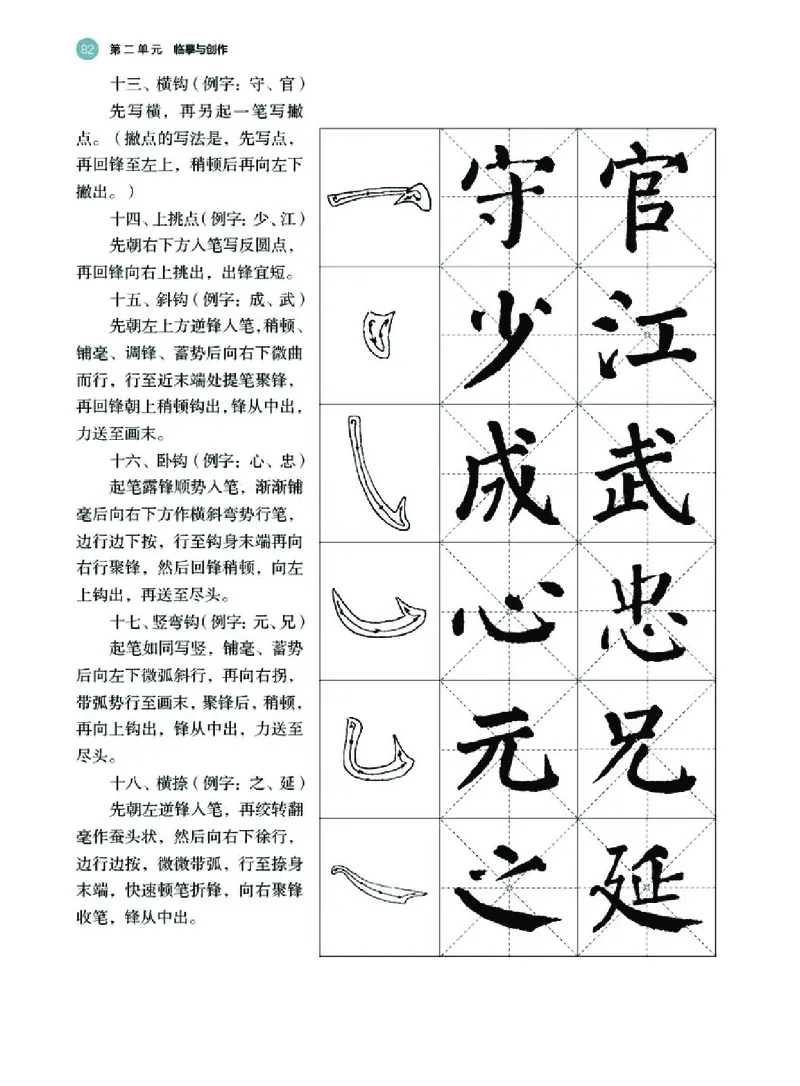 82 第二单元 临摹与创作
十三、横钩（例字：守、官）
先写横，再另起一笔写撇
点。（撇点的写法是，先写点，
再回锋至左上，稍顿后再向左下
撇出。）
十四、上挑点（例字：少、江）
先朝右下方入笔写反圆点，
再回锋向右上挑出，出锋宜短。
十五、斜钩（例字：成、武）
先朝左上方逆锋入笔，稍顿、
铺毫、调锋、蓄势后向右下微曲
而行，行至近末端处提笔聚锋，
再回锋朝上稍顿钩出，锋从中出，
力送至画末。
十六、卧钩（例字：心、忠）
起笔露锋顺势入笔，渐渐铺
毫后向右下方作横斜弯势行笔，
边行边下按，行至钩身末端再向
右行聚锋，然后回锋稍顿，向左
上钩出，再送至尽头。
十七、竖弯钩（例字：元、兄）
起笔如同写竖，铺毫、蓄势
后向左下微弧斜行，再向右拐，
带弧势行至画末，聚锋后，稍顿，
再向上钩出，锋从中出，力送至
尽头。
十八、横捺（例字：之、延）
先朝左逆锋入笔，再绞转翻
毫作蚕头状，然后向右下徐行，
边行边按，微微带弧，行至捺身
末端，快速顿笔折锋，向右聚锋
收笔，锋从中出。
守 官
少 江
成 武
心 忠
元 兄
之 延